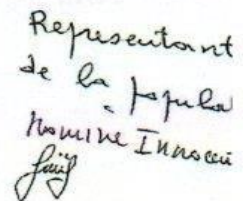 Representant
de la popula
Nomine Innocen